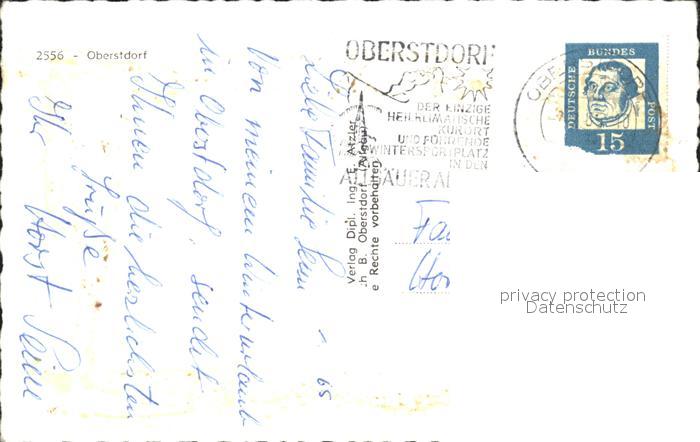 2556 - Oberstdorf
OBERSTDORF
DER EINZIGE
HEILKLIMATISCHE
KURORT
UND FÜHRENDE
WINTERSPORTPLATZ
IN DEN
ALLGÄUER AL
DEUTSCHE
BUNDES
POST
15
Verlag Dipl. Ing. E. Atzler
h B. Oberstdorf (Allgäu)
e Rechte vorbehalten
Liebe Familie
65
Von meinem Winterurlaub
in Oberstdorf sendet
Ihnen die herzlichsten
Grüße
Ihr Horst
Fa
Hor
privacy protection
Datenschutz